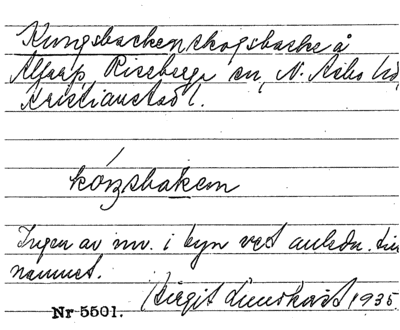 Kungsbacken, skogsbacke å
Alfarp, Riseberga sn, N. Åsbo hd,
Kristianstads l.
kóŋsbakem
Ingen av inv. i byn vet anledn. till
namnet.
Birgit Lundkvist 1935
Nr 5501.